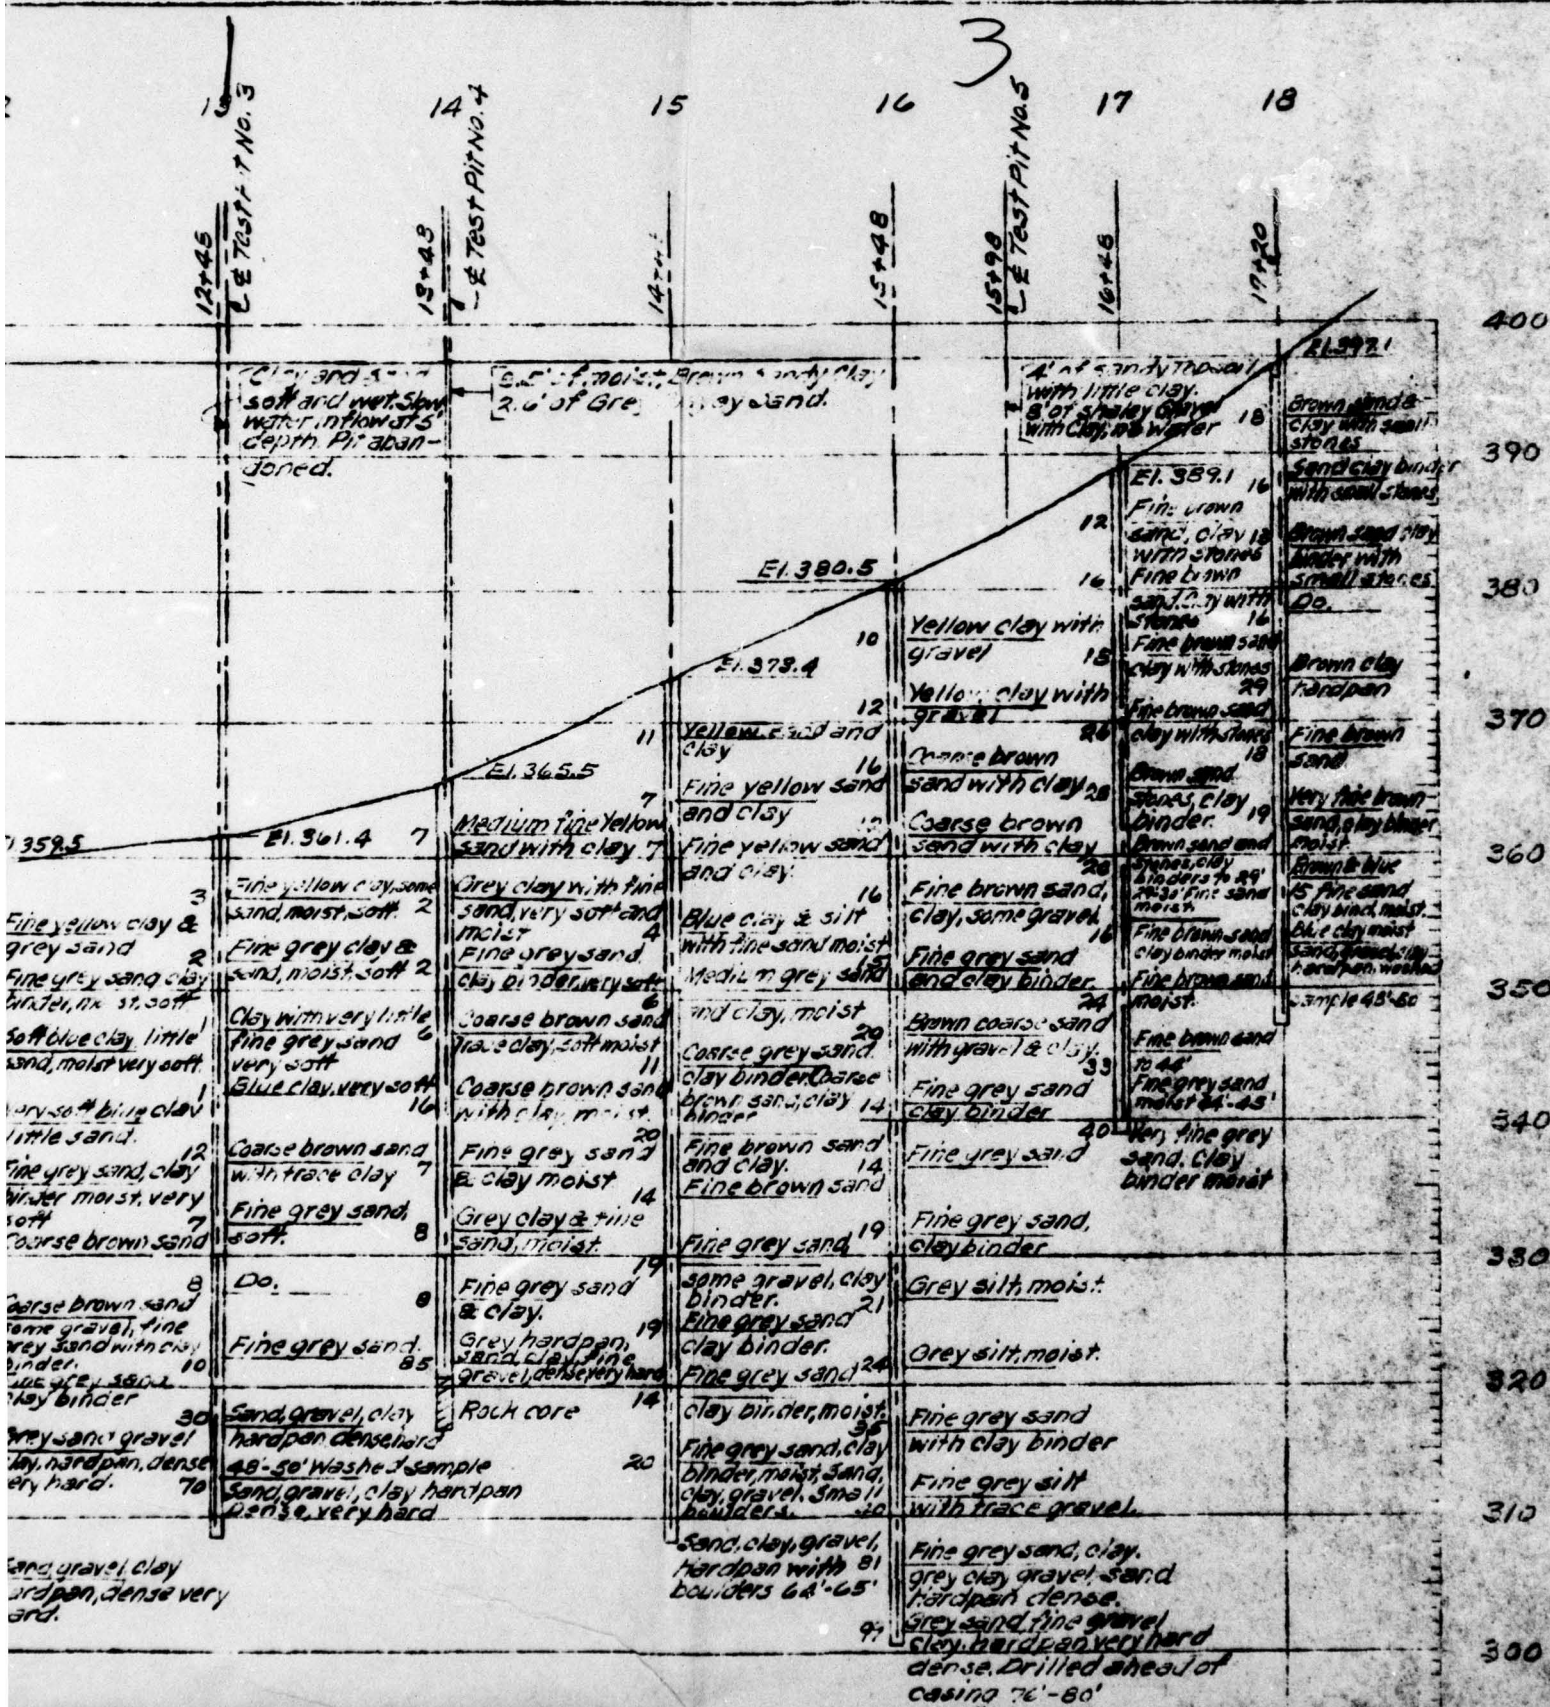 3
13
14
15
16
17
18
℄ Test Pit No. 3
℄ Test Pit No. 4
℄ Test Pit No. 5
12+48
13+48
15+48
15+98
16+48
17+20
400
390
380
370
360
350
340
330
320
310
300
Clay and
soft and wet. Slow
water inflow at 5'
depth. Pit aban-
doned.
of moist, Brown sandy Clay
2.6' of Sand.
4' of sandy Topsoil
with little clay.
8' of shaley Gravel
with Clay, no water
359.5
3
Fine yellow clay &
grey sand
2
Fine grey sand clay
binder, soft
1
Soft blue clay, little
sand, moist very soft
1
very soft blue clay
little sand.
12
Fine grey sand, clay
binder moist, very
soft
7
Coarse brown sand
8
Coarse brown sand
some gravel, fine
grey sand with clay
binder.
10
Fine grey sand
clay binder
30
Grey sand gravel
clay, hardpan, dense
very hard.
70
Sand, gravel, clay
hardpan, dense very
hard.
El. 361.4
7
Fine yellow clay, some
sand, moist, soft.
2
Fine grey clay &
sand, moist, soft
2
Clay with very little
fine grey sand
very soft
6
Blue clay, very soft
16
Coarse brown sand
with trace clay
7
Fine grey sand,
soft.
8
Do.
8
Fine grey sand.
85
Sand, gravel, clay
hardpan dense, hard
48'-50' Washed sample
Sand, gravel, clay hardpan
Dense, very hard
El. 365.5
7
Medium fine Yellow
sand with clay
7
Grey clay with fine
sand, very soft and
moist
4
Fine grey sand,
clay binder, very soft
6
Coarse brown sand
Trace clay, soft moist
11
Coarse brown sand
with clay, moist.
20
Fine grey sand
& clay moist
14
Grey clay & fine
sand, moist.
19
Fine grey sand
& clay.
19
Grey hardpan,
sand, clay, fine
gravel, dense, very hard
14
Rock core
20
El. 373.4
11
Yellow sand and
clay
16
Fine yellow sand
and clay
Fine yellow sand
and clay.
16
Blue clay & silt
with fine sand moist
15
Medium grey sand
and clay, moist
20
Coarse grey sand.
clay binder. Coarse
brown sand, clay
binder
14
Fine brown sand
and clay.
14
Fine brown sand
19
Fine grey sand,
some gravel, clay
binder.
21
Fine grey sand
clay binder.
24
Fine grey sand
clay binder, moist.
35
Fine grey sand, clay
binder, moist, sand,
clay, gravel. Small
boulders.
Sand, clay, gravel,
Hardpan with 81
boulders 64'-65'
El. 380.5
10
Yellow clay with
gravel
12
Yellow clay with
gravel
Coarse brown
sand with clay
28
Coarse brown
sand with clay
20
Fine brown sand,
clay, some gravel.
16
Fine grey sand
and clay binder.
24
Brown coarse sand
with gravel & clay.
33
Fine grey sand
clay binder
40
Fine grey sand
Fine grey sand,
clay binder
Grey silt, moist.
Grey silt, moist.
Fine grey sand
with clay binder
Fine grey silt
with trace gravel.
Fine grey sand, clay.
grey clay gravel, sand
hardpan dense.
Grey sand fine gravel
clay, hardpan very hard
dense. Drilled ahead of
casing 76'-80'
El. 389.1
12
Fine brown
sand, clay
with stones
16
Fine brown
sand, clay with
stones
Fine brown sand
clay with stones
Fine brown sand
clay with stones
Brown sand
stones, clay
binder.
Brown sand and
stones, clay
binders to 29'
29'-30' Fine sand
moist
Fine brown sand
clay binder moist
Fine brown sand
moist.
Fine brown sand
to 44'
Fine grey sand
moist 44'-45'
Very fine grey
sand. Clay
binder moist
El. 397.1
18
Brown sand &
clay with small
stones
16
Sand clay binder
with small stones
18
Brown sand clay
binder with
small stones
Do.
16
Brown clay
hardpan
29
Fine brown
sand
18
Very fine brown
sand, clay binder
moist.
19
Brown & blue
fine sand
clay bind, moist.
15
Blue clay moist
sand, gravel, clay
hardpan, washed
sample 48'-50'